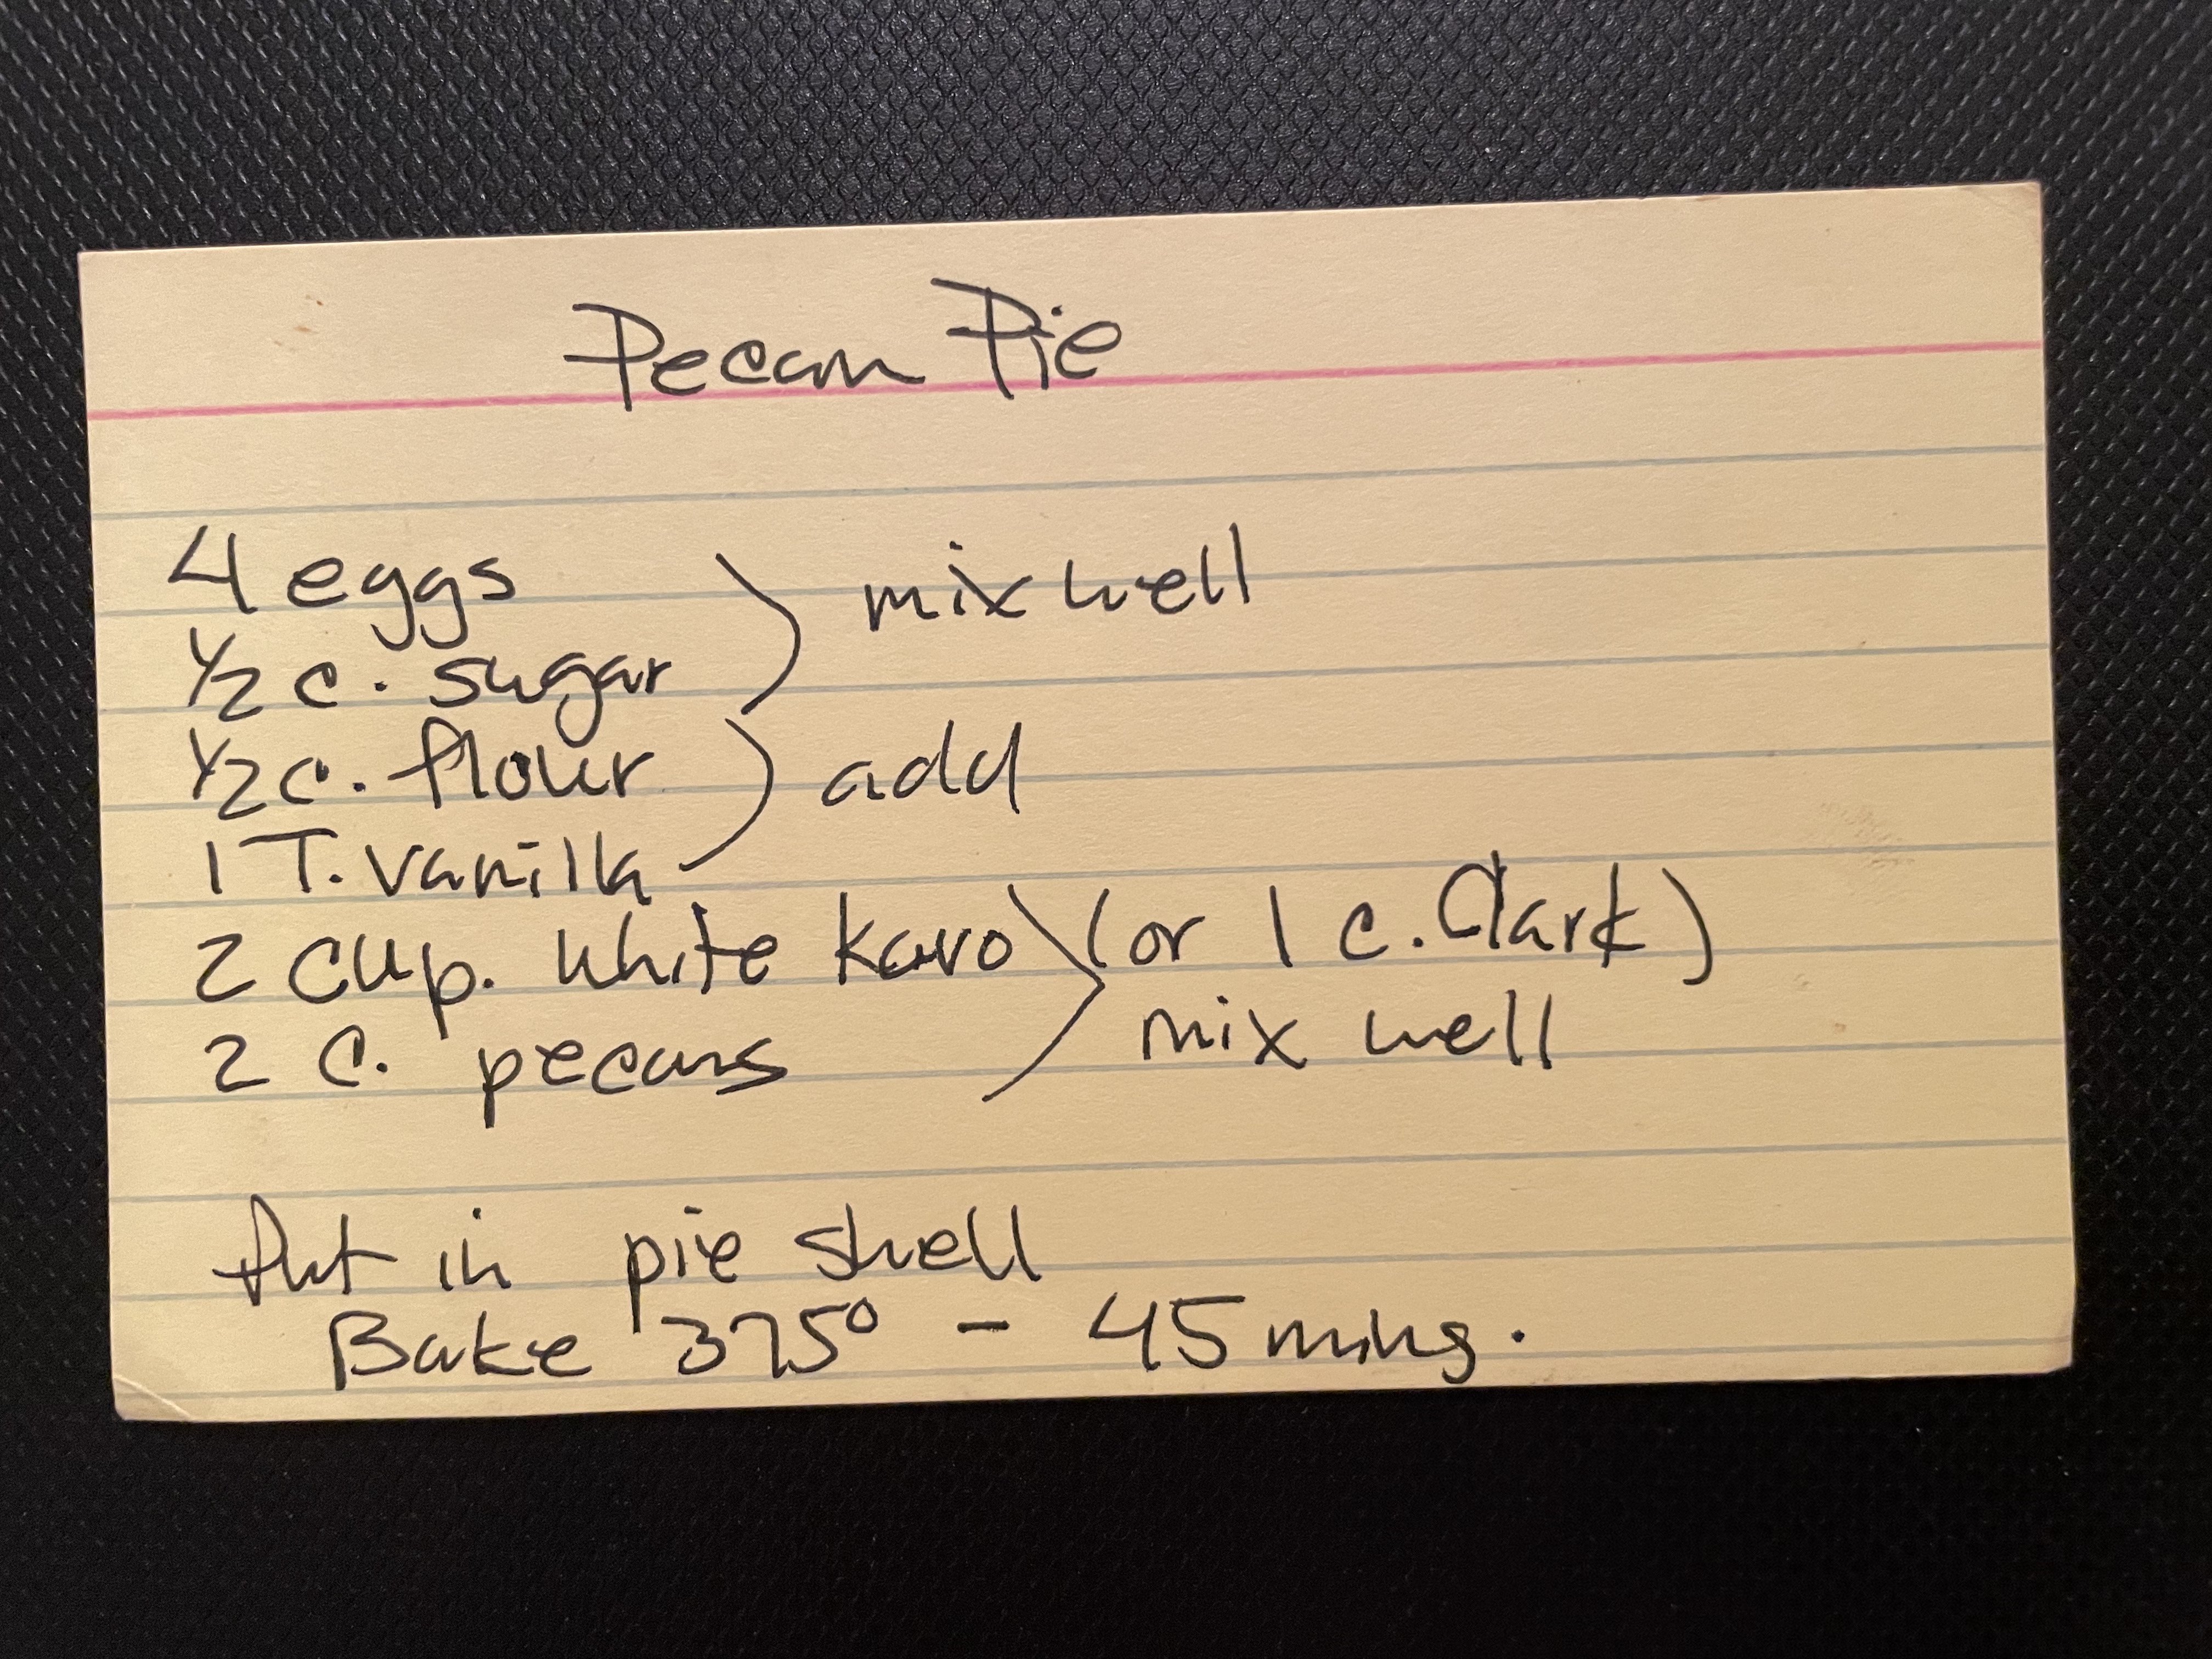 Pecan Pie
4 eggs
½ c. sugar ) mix well
½ c. flour
1 T. vanilla ) add
2 cup. white karo (or 1 c. dark)
2 c. pecans ) mix well
Put in pie shell
Bake 375° - 45 mins.